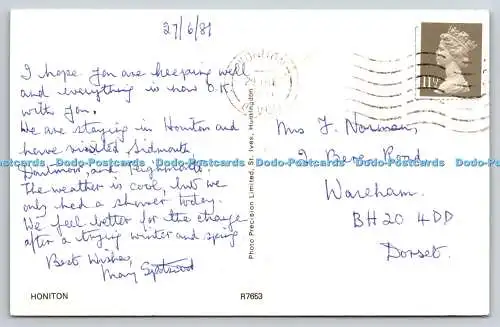 27/6/81
I hope you are keeping well
and everything is now O.K
with you.
We are staying in Honiton and
have visited Sidmouth
Dartmoor and Teignmouth.
The weather is cool, but we
only had a shower today.
We feel better for the change
after a trying winter and spring
Best Wishes,
Mary
HONITON
R7653
Photo Precision Limited, St. Ives, Huntingdon
11½P
Mrs J. Norman,
Bere Road
Wareham.
BH20 4DD
Dorset.
Dodo-Postcards Dodo-Postcards Dodo-Postcards Dodo-Postcards Dodo-Postcards